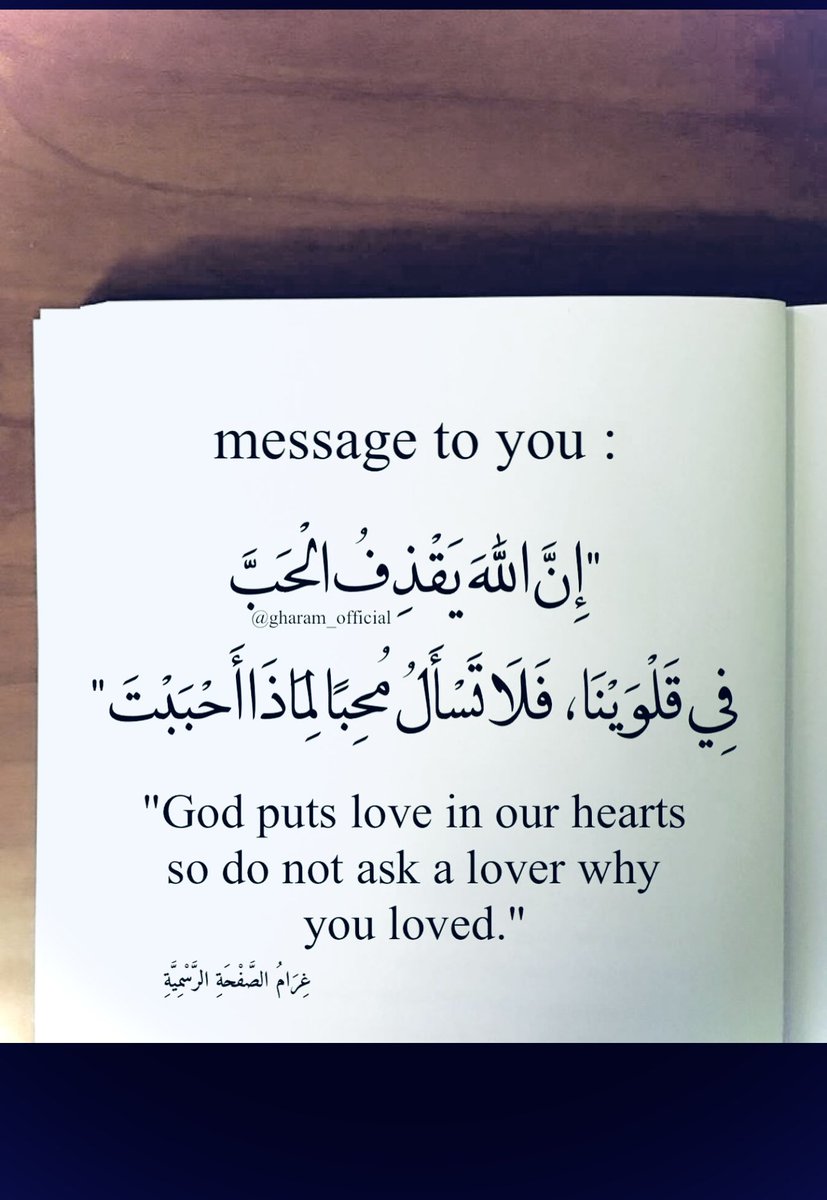 message to you :
"إِنَّ اللَّهَ يَقْذِفُ الْحَبَّ
@gharam_official
فِي قَلْوَيْنَا، فَلَا تَسْأَلُ مُحِبًا لِمَاذَا أَحْبَبْتَ"
"God puts love in our hearts
so do not ask a lover why
you loved."
غِرَامُ الصَّفْحَةِ الرَّسْمِيَّةِ